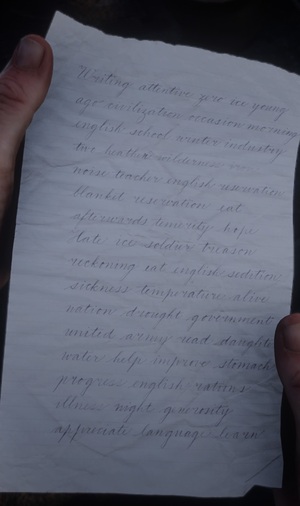 Writing attentive zero ice young
ago civilization occasion morning
english school winter industry
two heather wilderness
noise teacher english reservation
blanket reservation eat
afterwards timidity hope
late ice soldier treason
reckoning eat english sedition
sickness temperature alive
nation drought government
united army read daughter
water help improve stomach
progress english rations
illness night generosity
appreciate language learn